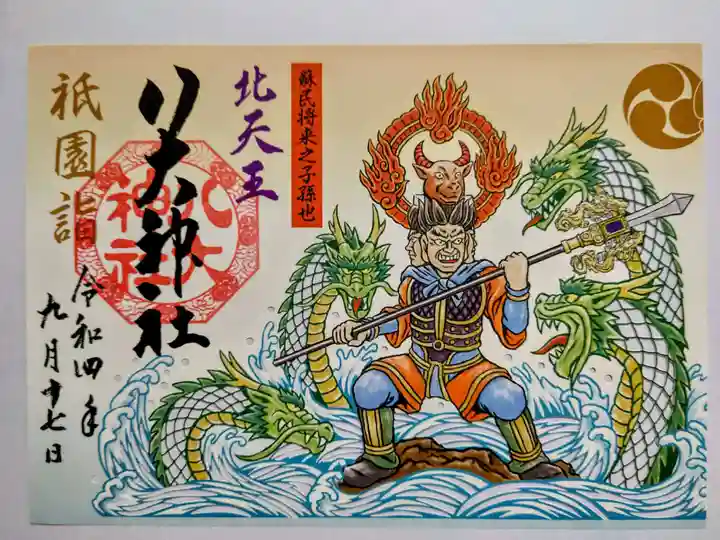 蘇民将来之子孫也
北天王
八大神社
八大
神社
祇園詣
令和四年
九月十七日